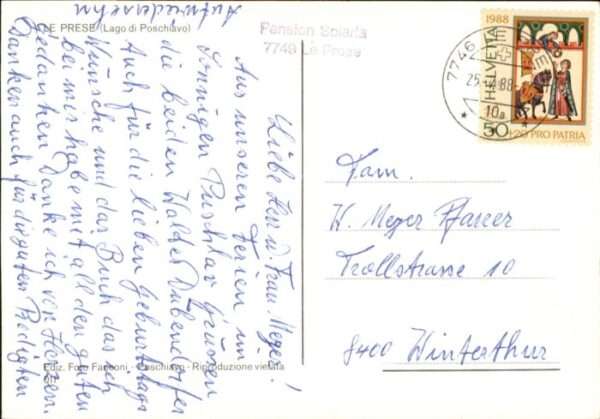 LE PRESE (Lago di Poschiavo)
Pension Solaria
7749 Le Prese
Liebe Herr u. Frau Meyer!
Aus unseren Ferien im
sonnigen Puschlav grüssen
die beiden Walder Dübendorfer
Auch für die lieben Geburtstags
Wünsche und das Buch das ich
bei mir habe mit all den guten
Gedanken Danke ich von Herzen.
Danken auch für die guten Predigten
Aufwiedersehn
Ediz. Foto Fanconi - Poschiavo - Riproduzione vietata
1988
HELVETIA
50+20 PRO PATRIA
7746
25.
88
10a
Fam.
W. Meyer Pfarrer
Trollstrasse 10
8400 Winterthur